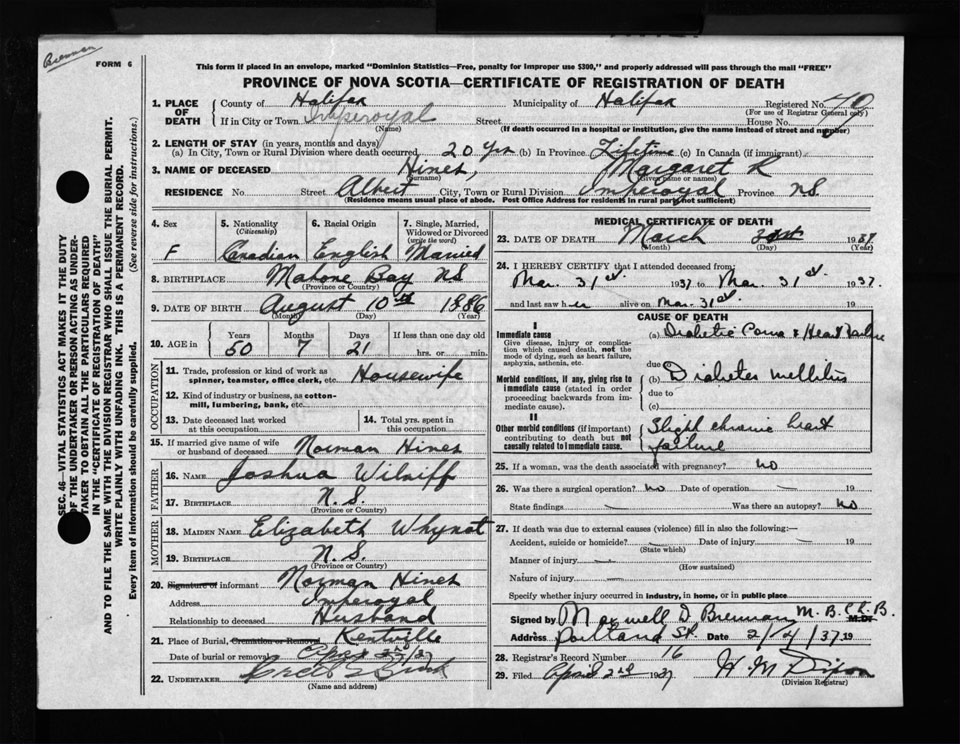 Brennan
FORM 6
This form if placed in an envelope, marked "Dominion Statistics—Free, penalty for improper use $300," and properly addressed will pass through the mail "FREE"
PROVINCE OF NOVA SCOTIA—CERTIFICATE OF REGISTRATION OF DEATH
1. PLACE OF DEATH
County of Halifax Municipality of Halifax Registered No.
(For use of Registrar General only)
If in City or Town Imperoyal Street House No.
(Name) (If death occurred in a hospital or institution, give the name instead of street and number)
2. LENGTH OF STAY (in years, months and days)
(a) In City, Town or Rural Division where death occurred 20 Yrs (b) In Province Lifetime (c) In Canada (if immigrant)
3. NAME OF DECEASED Hines, Margaret L
(Surname) (Given name or names)
RESIDENCE No. Street Albert City, Town or Rural Division Imperoyal Province NS
(Residence means usual place of abode. Post Office Address for residents in rural parts not sufficient)
4. Sex 5. Nationality 6. Racial Origin 7. Single, Married, Widowed or Divorced
(Citizenship) (write the word)
F Canadian English Married
8. BIRTHPLACE Mahone Bay NS
(Province or Country)
9. DATE OF BIRTH August 10th 1886
(Month) (Day) (Year)
10. AGE in Years Months Days If less than one day old
50 7 21 hrs. or min.
OCCUPATION
11. Trade, profession or kind of work as spinner, teamster, office clerk, etc. Housewife
12. Kind of industry or business, as cotton-mill, lumbering, bank, etc.
13. Date deceased last worked at this occupation
14. Total yrs. spent in this occupation
15. If married give name of wife or husband of deceased Norman Hines
FATHER
16. NAME Joshua Wilniff
17. BIRTHPLACE N.S.
(Province or Country)
MOTHER
18. MAIDEN NAME Elizabeth Whynot
19. BIRTHPLACE N.S.
(Province or Country)
20. Signature of informant Norman Hines
Address Imperoyal
Relationship to deceased Husband
21. Place of Burial, Cremation or Removal Kentville
Date of burial or removal
22. UNDERTAKER
(Name and address)
MEDICAL CERTIFICATE OF DEATH
23. DATE OF DEATH March 31st 1937
(Month) (Day) (Year)
24. I HEREBY CERTIFY that I attended deceased from:
Mar. 31st 1937 to Mar. 31st 1937.
and last saw her alive on Mar. 31st 19
CAUSE OF DEATH
I
Immediate cause (a) Diabetic Coma & Heart Failure
Give disease, injury or complication which caused death, not the mode of dying, such as heart failure, asphyxia, asthenia, etc.
due to
Morbid conditions, if any, giving rise to immediate cause (stated in order proceeding backwards from immediate cause).
(b) Diabetes mellitis
due to
(c)
II
Other morbid conditions (if important) contributing to death but not causally related to immediate cause.
Slight chronic heart failure
25. If a woman, was the death associated with pregnancy? no
26. Was there a surgical operation? No Date of operation — 19
State findings — Was there an autopsy? No
27. If death was due to external causes (violence) fill in also the following:—
Accident, suicide or homicide? — Date of injury — 19
(State which)
Manner of injury —
(How sustained)
Nature of injury —
Specify whether injury occurred in industry, in home, or in public place
Signed by Maxwell D Brennan M.B. Ch.B. M.D.
Address Portland St. Date 2/4/37 19
28. Registrar's Record Number 16
29. Filed April 2nd 1937 H M
(Division Registrar)
SEC. 46—VITAL STATISTICS ACT MAKES IT THE DUTY
OF THE UNDERTAKER OR PERSON ACTING AS UNDER-
TAKER TO OBTAIN ALL THE PARTICULARS REQUIRED
IN THE "CERTIFICATE OF REGISTRATION OF DEATH"
AND TO FILE THE SAME WITH THE DIVISION REGISTRAR WHO SHALL ISSUE THE BURIAL PERMIT.
WRITE PLAINLY WITH UNFADING INK. THIS IS A PERMANENT RECORD.
Every item of information should be carefully supplied. (See reverse side for instructions.)